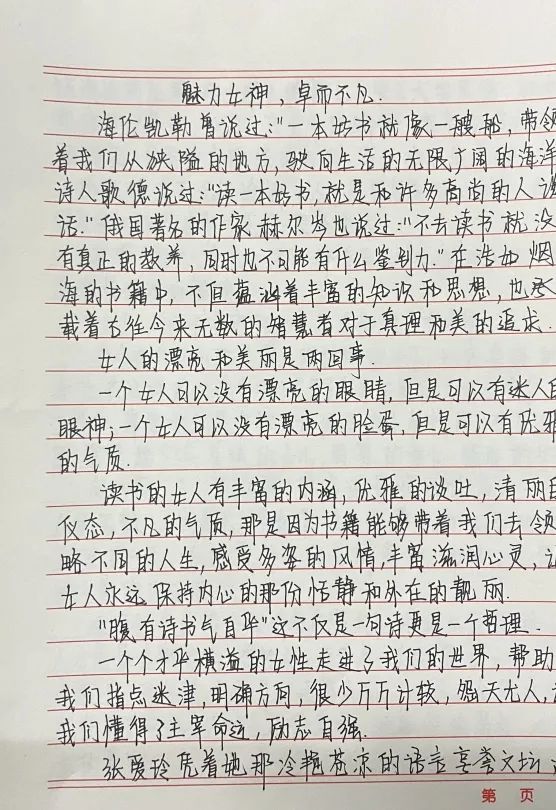 魅力女神，卓而不凡.
海伦凯勒曾说过："一本好书就像一艘船，带领
着我们从狭隘的地方，驶向生活的无限广阔的海洋
诗人歌德说过："读一本好书，就是和许多高尚的人谈
话."俄国著名的作家赫尔岑也说过："不去读书就没
有真正的教养，同时也不可能有什么鉴别力."在浩如烟
海的书籍中，不但蕴涵着丰富的知识和思想，也承
载着古往今来无数的智慧者对于真理和美的追求.
女人的漂亮和美丽是两回事.
一个女人可以没有漂亮的眼睛，但是可以有迷人的
眼神；一个女人可以没有漂亮的脸蛋，但是可以有优雅
的气质.
读书的女人有丰富的内涵，优雅的谈吐，清丽的
仪态，不凡的气质，那是因为书籍能够带着我们去领
略不同的人生，感受多姿的风情，丰富滋润心灵，让
女人永远保持内心的那份恬静和外在的靓丽.
"腹有诗书气自华"这不仅是一句诗更是一个哲理.
一个个才华横溢的女性走进了我们的世界，帮助
我们指点迷津，明确方向，很少斤斤计较，怨天尤人，
我们懂得了主宰命运，励志自强.
张爱玲凭着她那冷艳苍凉的语言享誉文坛
第 页